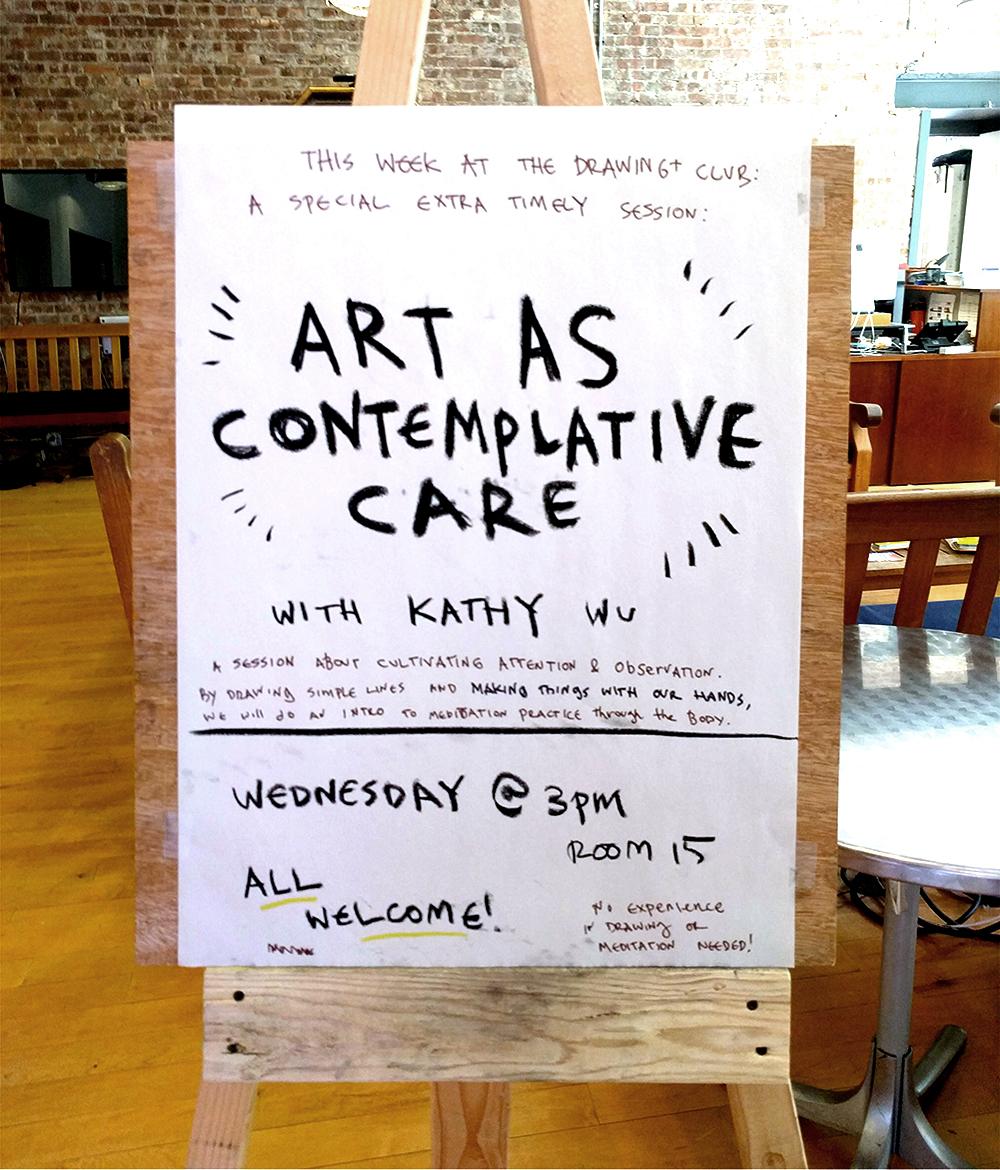 THIS WEEK AT THE DRAWING+ CLUB:
A SPECIAL EXTRA TIMELY SESSION:
ART AS
CONTEMPLATIVE
CARE
WITH KATHY WU
A SESSION ABOUT CULTIVATING ATTENTION & ObSERVATION.
By DRAWING SIMPLE LINES AND MAKING THINGS WITH OUR HANDS,
WE Will do AN INTRO TO MEDITATION PRACTICE through the BODY.
WEDNESDAY @ 3PM
ROOM 15
ALL
WELCOME!
No EXPERIENCE
IN DRAWING OR
MEDITATION NEEDED!